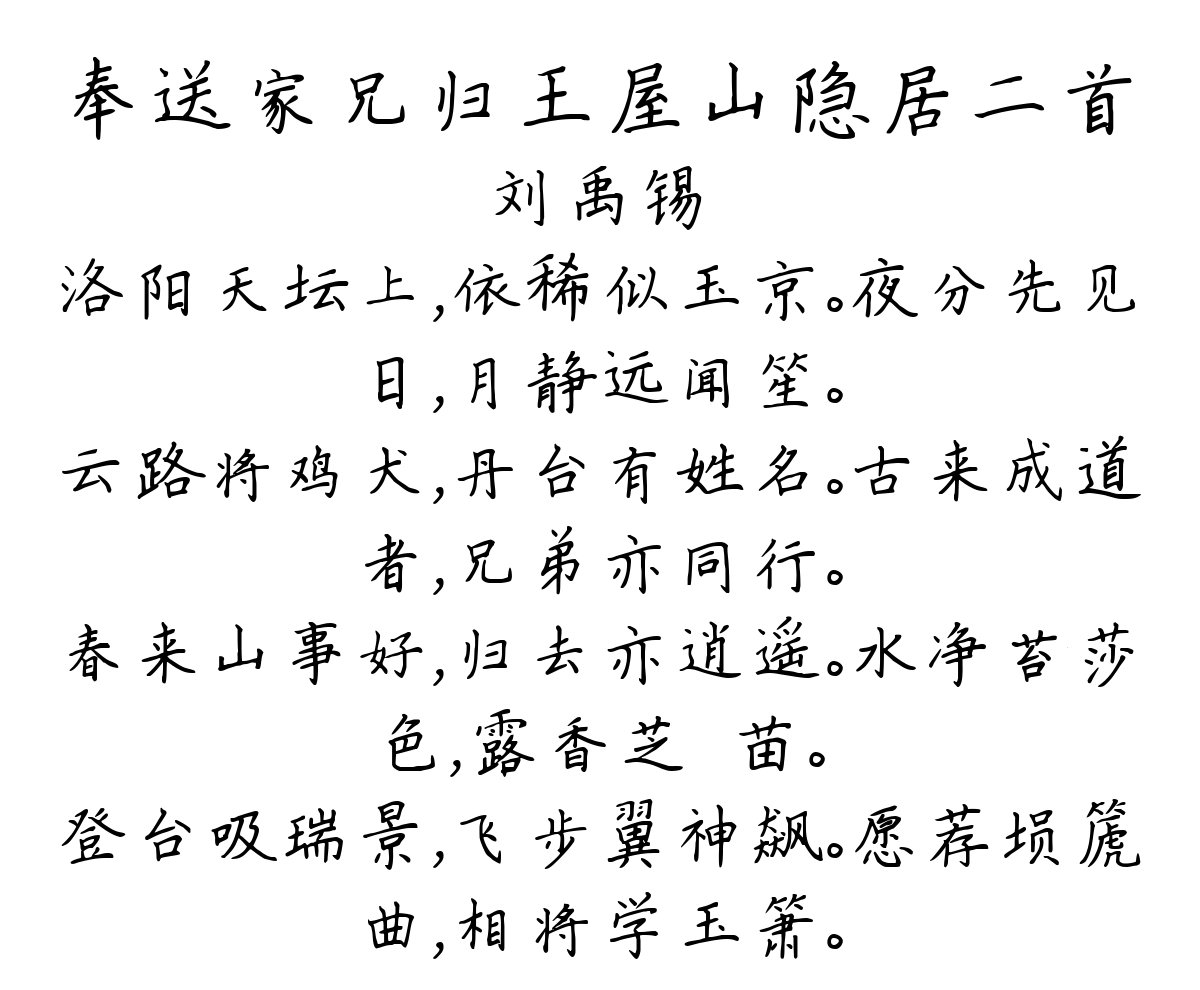 奉送家兄归王屋山隐居二首
刘禹锡
洛阳天坛上,依稀似玉京。夜分先见
日,月静远闻笙。
云路将鸡犬,丹台有姓名。古来成道
者,兄弟亦同行。
春来山事好,归去亦逍遥。水净苔莎
色,露香芝 苗。
登台吸瑞景,飞步翼神飙。愿荐埙篪
曲,相将学玉箫。